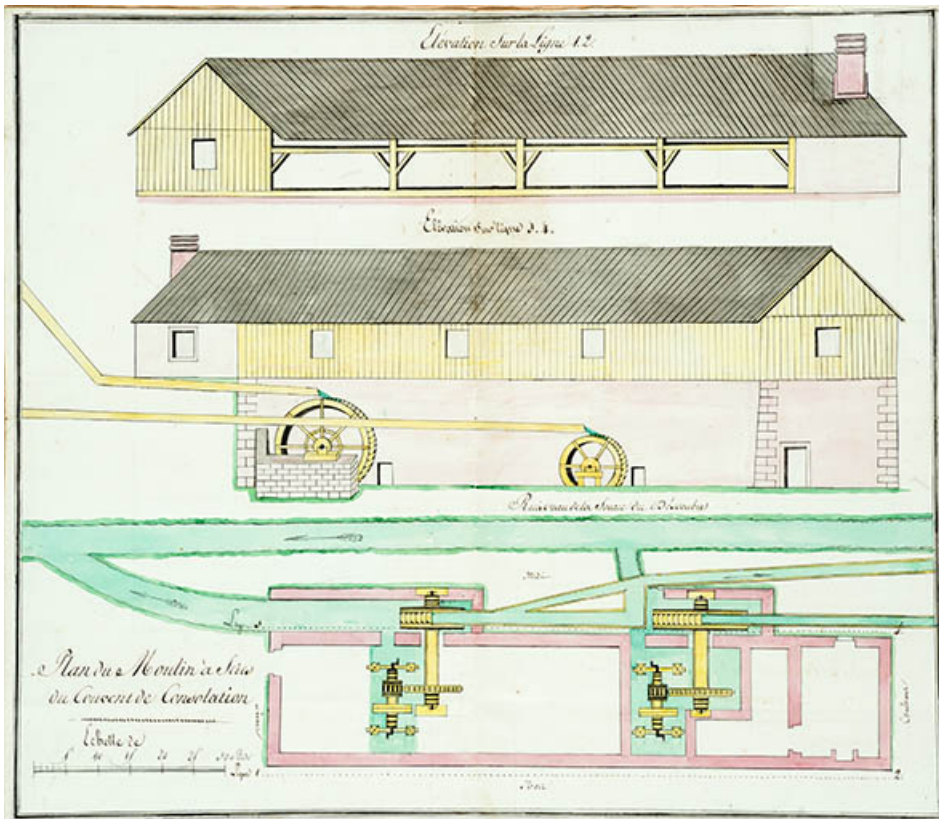 Elévation sur la Ligne 1.2.
Elévation sur ligne 3.4.
Ruisseau de la Source du
Midi
Ligne 3
Plan du Moulin à Scies
du Couvent de Consolation
Echelle de
5 10 15 20 25
Ligne 1
2